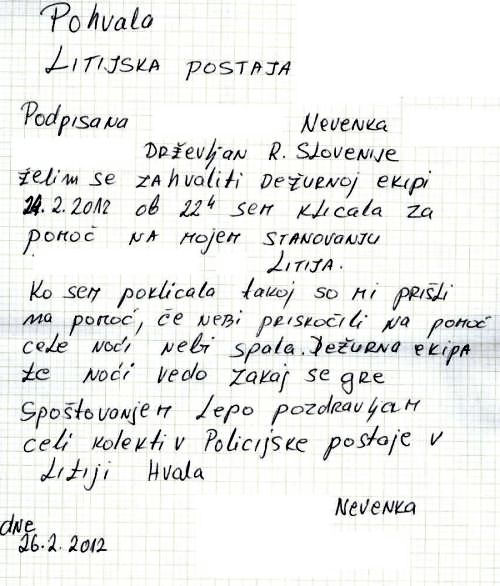 Pohvala
LITIJSKA POSTAJA
Podpisana Nevenka
Državljan R. Slovenije
želim se zahvaliti Dežurnoj ekipi
24.2.2012 ob 22h sem klicala za
pomoč na mojem stanovanju
Litija.
Ko sem poklicala takoj so mi prišli
na pomoč, če nebi priskočili na pomoč
cele noči nebi spala. Dežurna ekipa
te noči vedo zakaj se gre
Spoštovanjem Lepo pozdravljam
celi kolektiv Policijske postaje v
Litiji Hvala
Nevenka
dne
26.2.2012